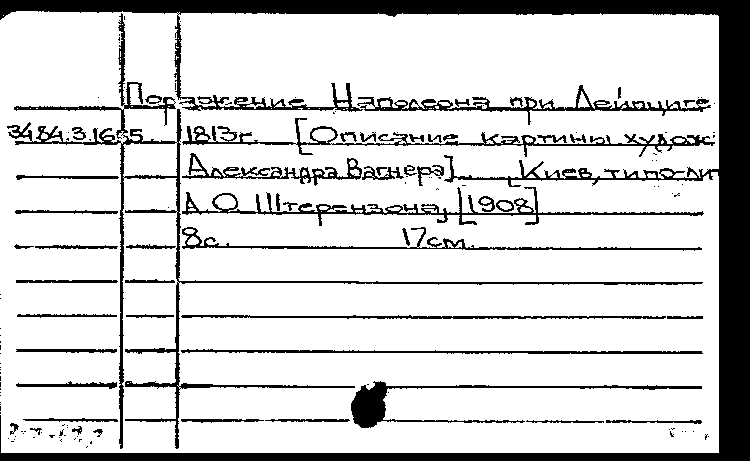 Поражение Наполеона при Лейпциге
34.84.3.1685. 1813г. [Описание картины худож.
Александра Вагнера]. Киев, типо-лит
А.О.Штерензона, [1908]
8с. 17см.